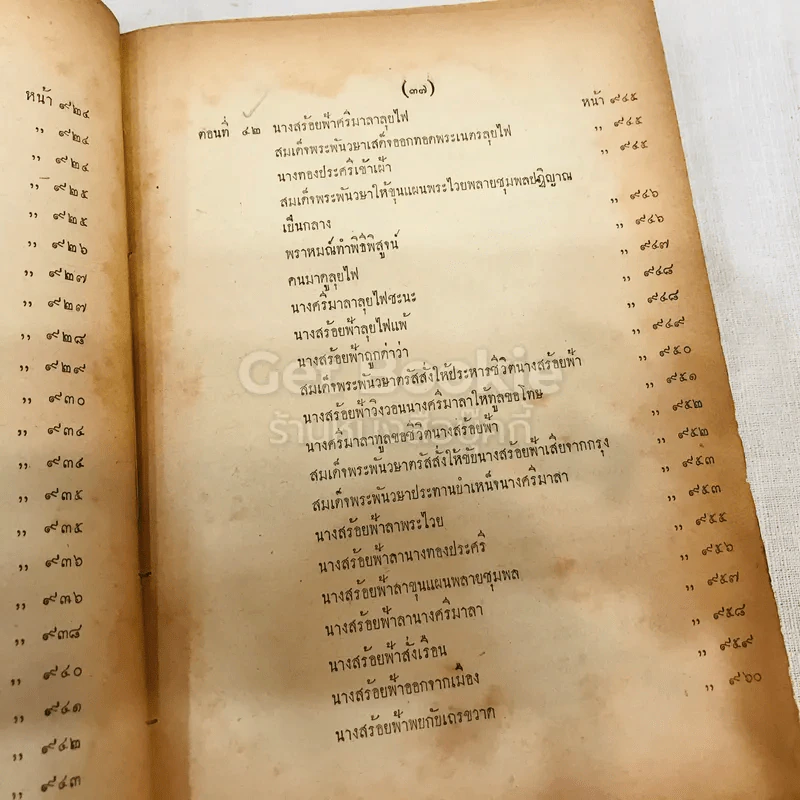 หน้า ๙๒๔
,, ๙๒๔
,, ๙๒๔
,, ๙๒๕
,, ๙๒๕
,, ๙๒๖
,, ๙๒๗
,, ๙๒๗
,, ๙๒๘
,, ๙๒๙
,, ๙๓๐
,, ๙๓๔
,, ๙๓๔
,, ๙๓๕
,, ๙๓๕
,, ๙๓๖
,, ๙๓๖
,, ๙๓๘
,, ๙๔๐
,, ๙๔๑
,, ๙๔๒
,, ๙๔๓
(๓๗)
ตอนที่ ๔๒ นางสร้อยฟ้าศรีมาลาลุยไฟ หน้า ๙๔๕
สมเด็จพระพันวษาเสด็จออกทอดพระเนตรลุยไฟ ,, ๙๔๕
นางทองประศรีเข้าเฝ้า ,, ๙๔๕
สมเด็จพระพันวษาให้ขุนแผนพระไวยพลายชุมพลปฏิญาณ
เป็นกลาง ,, ๙๔๖
พราหมณ์ทำพิธีพิสูจน์ ,, ๙๔๖
คนมาดูลุยไฟ ,, ๙๔๗
นางศรีมาลาลุยไฟชะนะ ,, ๙๔๘
นางสร้อยฟ้าลุยไฟแพ้ ,, ๙๔๘
นางสร้อยฟ้าถูกด่าว่า ,, ๙๔๙
สมเด็จพระพันวษาตรัสสั่งให้ประหารชีวิตนางสร้อยฟ้า ,, ๙๕๐
นางสร้อยฟ้าวิงวอนนางศรีมาลาให้ทูลขอโทษ ,, ๙๕๑
นางศรีมาลาทูลขอชีวิตนางสร้อยฟ้า ,, ๙๕๒
สมเด็จพระพันวษาตรัสสั่งให้ขับนางสร้อยฟ้าเสียจากกรุง ,, ๙๕๒
สมเด็จพระพันวษาประทานบำเหน็จนางศรีมาลา ,, ๙๕๓
นางสร้อยฟ้าลาพระไวย ,, ๙๕๓
นางสร้อยฟ้าลานางทองประศรี ,, ๙๕๕
นางสร้อยฟ้าลาขุนแผนพลายชุมพล ,, ๙๕๖
นางสร้อยฟ้าลานางศรีมาลา ,, ๙๕๗
นางสร้อยฟ้าสั่งเรือน ,, ๙๕๘
นางสร้อยฟ้าออกจากเมือง ,, ๙๕๙
นางสร้อยฟ้าพบกับเถรขวาด ,, ๙๖๐